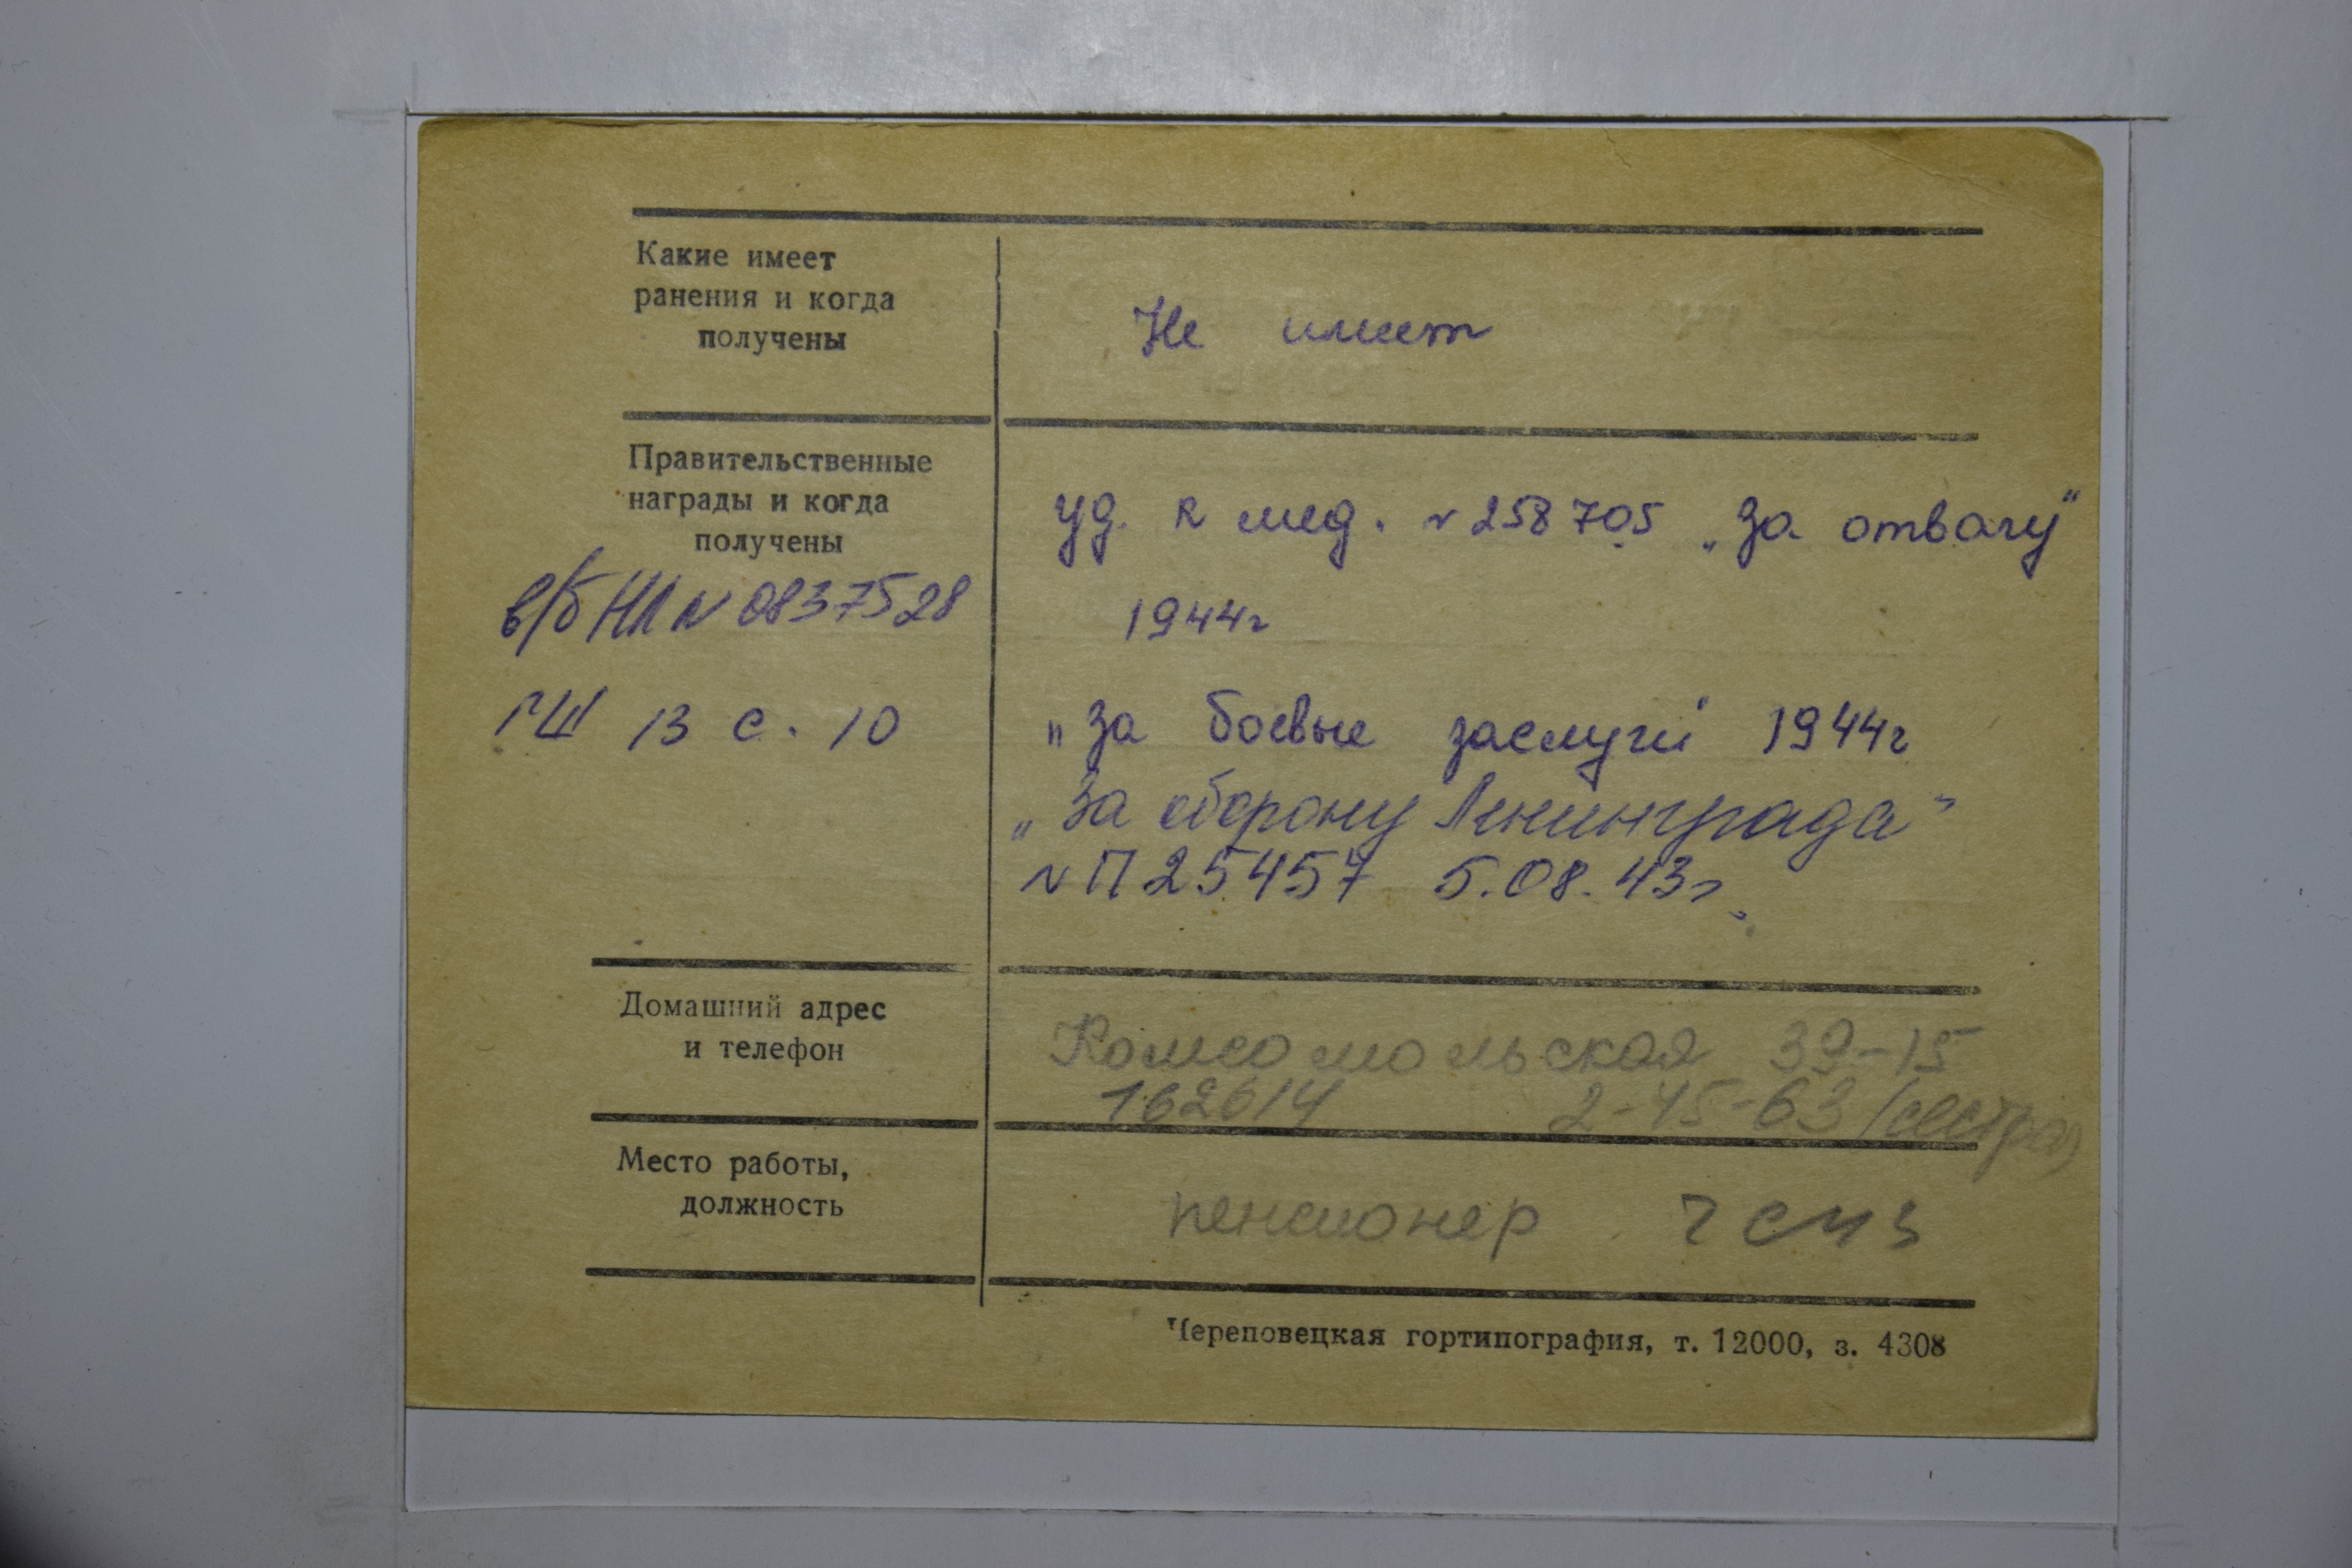 Какие имеет
ранения и когда
получены
Не имеет
Правительственные
награды и когда
получены
в/б НЛ N 0837528
ГШ 13 с. 10
уд. к мед. N 258705 „За отвагу“
1944г
„За боевые заслуги“ 1944г
„За оборону Ленинграда“
N П 25457 5.08.43г.
Домашний адрес
и телефон
Комсомольская 39-15
162614 2-45-63 (сестра)
Место работы,
должность
пенсионер
Череповецкая гортипография, т. 12000, з. 4308